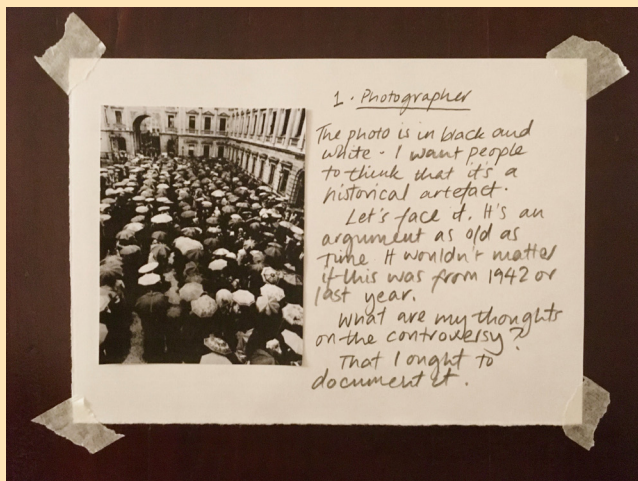 1. Photographer
The photo is in black and
white - I want people
to think that it's a
historical artefact.
Let's face it. It's an
argument as old as
time. It wouldn't matter
if this was from 1942 or
last year.
What are my thoughts
on the controversy?
That I ought to
document it.